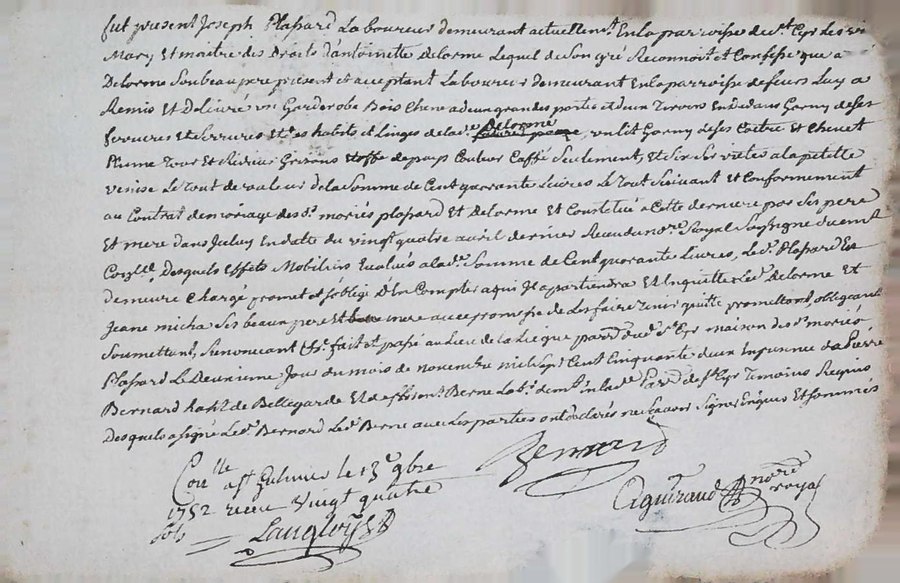 fut present Joseph Plapard Laboureur demeurant actuellemt. En la paroisse de st. Cyr Les vi
Mary Et maitre des Droits d'antoinette Delorme Lequel de Son gré Reconnoit et Confesse que a
Delorme Son beau pere present et acceptant Laboureur demeurant En la parroisse de feurs Luy a
Remis Et Delivré un Garderobe Bois Chene a deux grandes portes et deux Tiroirs En dedans Garny de ses
Serrures Et ferrures Et Ses habits et Linges de lad. Delorme, un lit Garny de ses Coitre Et Chevet
Plume Tour Et Rideaux Grisons Etoffe de pays Couleur Caffé Seulement, Et Six Serviettes a la petitte
venise Le Tout de valeur de la Somme de Cent quarante Livres Le Tout Suivant Et Conformement
au Contrat de mariage des ds. mariés plapard Et Delorme Et Constitué a Cette derniere par Ses pere
Et mere dans Iceluy En datte du vingt quatre avril dernier Receu du nore. Royal Soussigne duemt.
Conllé, Desquels Effets Mobiliers Evalués a lad. Somme de Cent quarante Livres, Led. Plapard En
demeure Chargé promet et s'oblige D'En Compter a qui Il apartiendra Et En quitte Led. Delorme Et
Jeane micha Ses beau pere Et mere avec promesse de Les faire Tenir quitte promettant, obligeant
Soumettant, Renoncant &c. fait et passé au Lieu de la pard. dud. st. Cyr maison des ds. mariés
Plapard Le Deuxieme Jour du mois de novembre mil Sept Cent Cinquante deux En presence de Pierre
Bernard de Bellegarde Et de Berne Lab. demt. En lad. Parr. de st. Cyr Temoins Requis
Desquels a signé Led. Bernard Led. Berne avec Les parties ont declarés ne Scavoir Signer Enquis Et Sommés
Bernard
Conlle a st Galmier le 13e 9bre
1752 receu vingt quatre
sols Langloys
Aguiraud nore royal